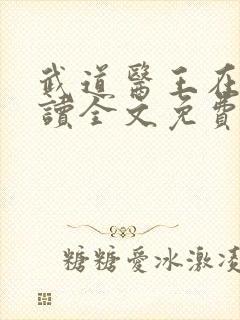 武道醫王在
讀全文免費
糖糖愛冰激凌